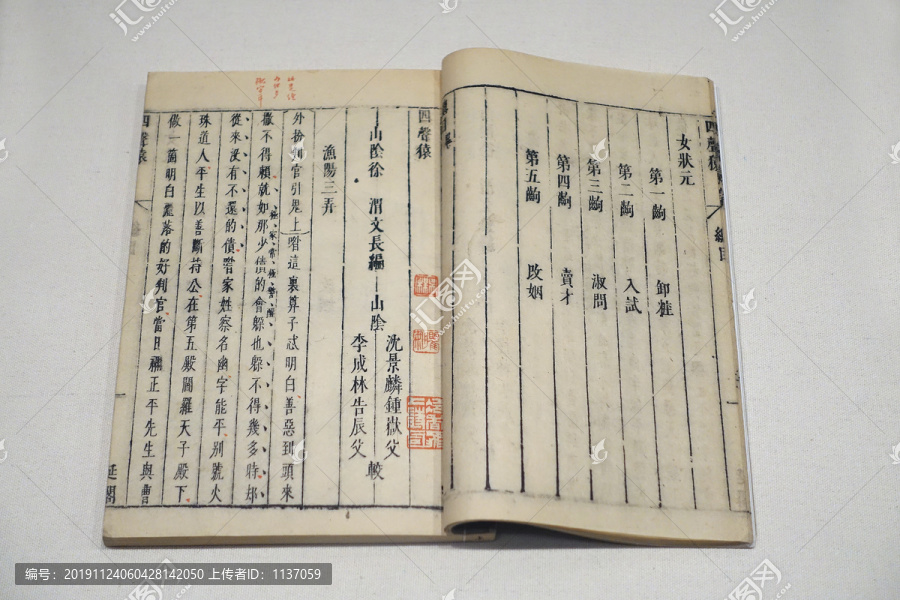 四聲猿
女狀元
第一齣 卸粧
第二齣 入試
第三齣 淑問
第四齣 賣才
第五齣 改姻
四聲猿
山陰徐 渭文長編 山陰
沈景麟鍾嶽父
李成林告辰父
較
漁陽三弄
外扮判官引鬼上 喒這裏算子忒明白善惡到頭來
撒不得賴就如那少債的會躲也躲不得幾多時却
從來沒有不還的債喒家姓察名幽字能平別號火
珠道人平生以善斷持公在第五殿閻羅天子殿下
做一箇明白灑落的好判官當日禰正平先生與曹
四聲猿
延閣
汇图网
编号：20191124060428142050 上传者ID：1137059